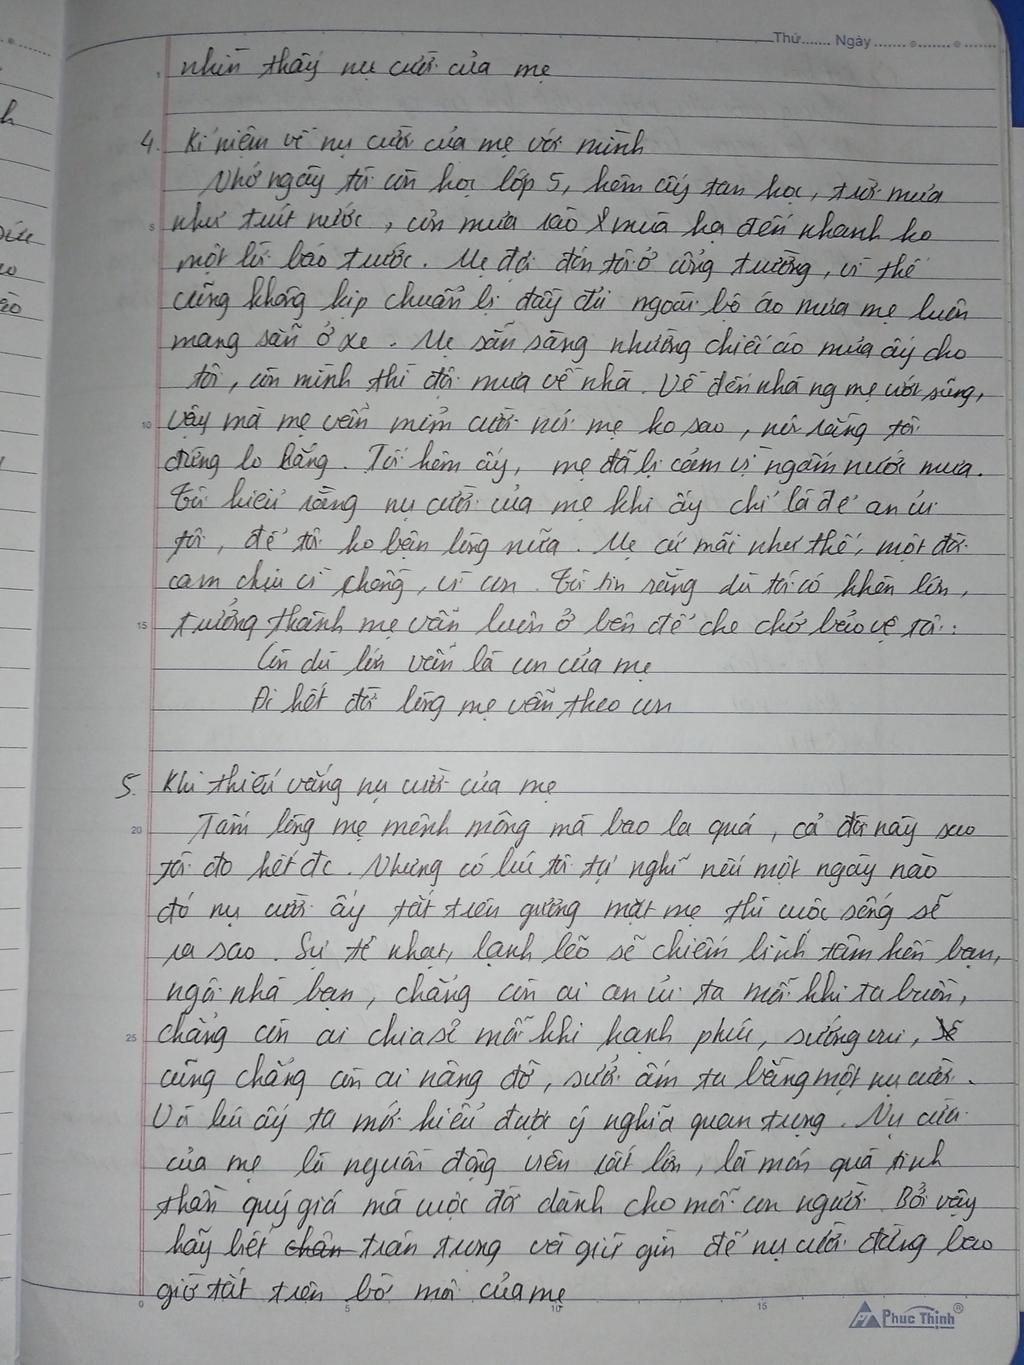 Thứ....... Ngày
nhìn thấy nụ cười của mẹ
4. Kỉ niệm về nụ cười của mẹ với mình
Nhớ ngày tôi còn học lớp 5, hôm ấy tan học, trời mưa
như trút nước, cơn mưa rào mùa hạ đến nhanh ko
một lời báo trước. Mẹ đợi đón tôi ở cổng trường, vì thế
cũng không kịp chuẩn bị đầy đủ ngoài bộ áo mưa mẹ luôn
mang sẵn ở xe. Mẹ sẵn sàng nhường chiếc áo mưa ấy cho
tôi, còn mình thì đội mưa về nhà. Về đến nhà ng mẹ ướt sũng,
vậy mà mẹ vẫn mỉm cười nói mẹ ko sao, nói rằng tôi
đừng lo lắng. Tối hôm ấy, mẹ đã bị cảm vì ngấm nước mưa.
Tôi hiểu rằng nụ cười của mẹ khi ấy chỉ là để an ủi
tôi, để tôi ko bận lòng nữa. Mẹ cứ mãi như thế, một đời
cam chịu vì chồng, vì con. Tôi tin rằng dù tôi có khôn lớn,
trưởng thành mẹ vẫn luôn ở bên để che chở bảo vệ tôi:
Con dù lớn vẫn là con của mẹ
Đi hết đời lòng mẹ vẫn theo con
5. Khi thiếu vắng nụ cười của mẹ
Tấm lòng mẹ mênh mông mà bao la quá, cả đời này sao
tôi đo hết đc. Nhưng có lúc tôi tự nghĩ nếu một ngày nào
đó nụ cười ấy tắt trên gương mặt mẹ thì cuộc sống sẽ
ra sao. Sự tẻ nhạt, lạnh lẽo sẽ chiếm lĩnh tâm hồn bạn,
ngôi nhà bạn, chẳng còn ai an ủi ta mỗi khi ta buồn,
chẳng còn ai chia sẻ mỗi khi hạnh phúc, sướng vui,
cũng chẳng còn ai nâng đỡ, sưởi ấm ta bằng một nụ cười.
Và lúc ấy ta mới hiểu được ý nghĩa quan trọng. Nụ cười
của mẹ là nguồn động viên rất lớn, là món quà tinh
thần quý giá mà cuộc đời dành cho mỗi con người. Bởi vậy
hãy biết trân trọng và giữ gìn để nụ cười đừng bao
giờ tắt trên bờ môi của mẹ
Phuc Thịnh